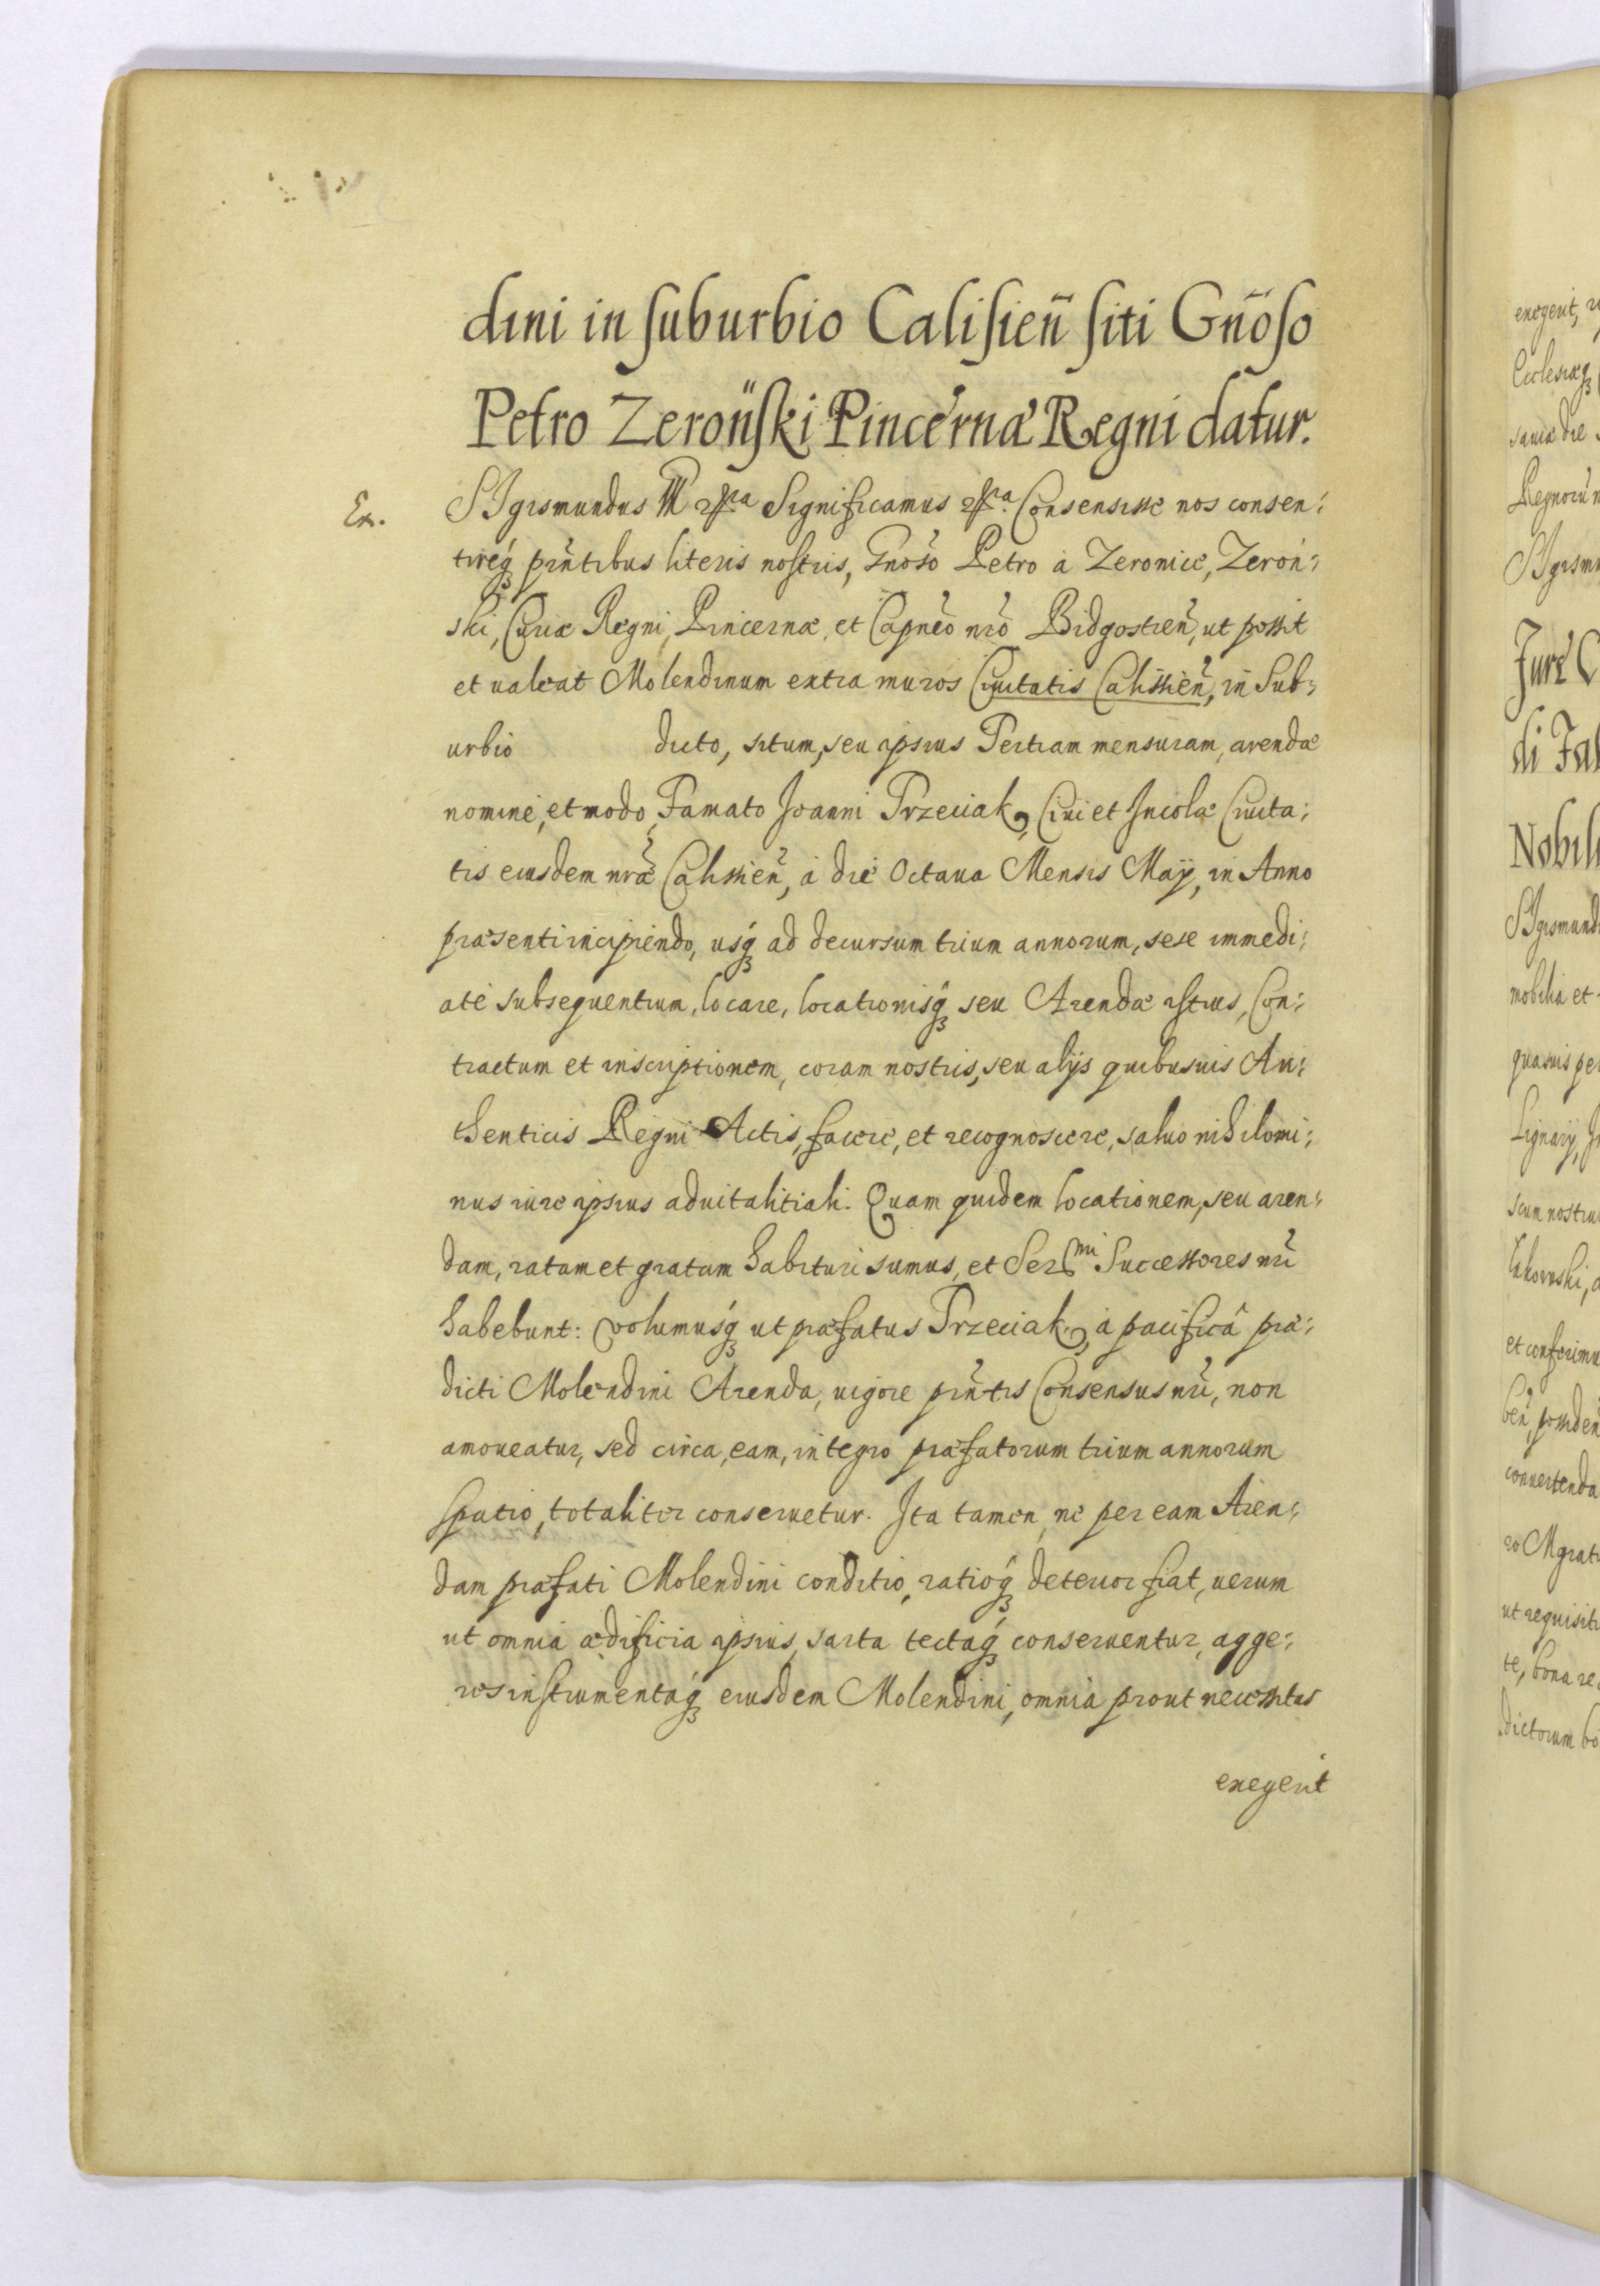 dini in suburbio Calisieñ siti Gnõso
Petro Zeroński Pincernæ Regni datur.
Ex. SIgismundus III etca Significamus etca. Consensisse nos consen:
tireq́ꝫ pñtibus literis nostris, Gnõso Petro à Zeronice, Zeroń:
ski, Curiæ Regni, Pincernæ, et Capnẽo nrõ Bidgostieñ, ut possit
et ualeat Molendinum extra muros Ciuitatis Calissieñ, in Sub:
urbio dicto, situm, seu ipsius Tertiam mensuram, arendæ
nominė, et modo, Famato Joanni Trzeciak, Ciui et Incolæ Ciuita:
tis eiusdem nræ̃ Calissieñ, à die Octaua Mensis Maÿ, in Anno
præsenti incipiendo, usq́ꝫ ad decursum trium annorum, sese immedi:
atė subsequentium, locare, locationisq́ꝫ seu Arendæ istius, Con:
tractum et inscriptionem, coram nostris, seu alÿs quibusuis Au:
thenticis Regni Actis, facere, et recognoscere, saluo nihilomi:
nus iure ipsius aduitalitiali. Quam quidem locationem, seu aren:
dam, ratam et gratam habituri sumus, et Sermi Successores nrĩ
habebunt: volumusq́ꝫ ut præfatus Trzeciak, à pacificâ præ:
dicti Molendini Arenda, uigore pñtis Consensus nrĩ, non
amoueatur, sed circa, eam, integro præfatorum trium annorum
spatio, totaliter conseruetur. Ita tamen, ne per eam Aren:
dam præfati Molendini conditio, ratioq́ꝫ deterior fiat, uerum
ut omnia ædificia ipsius, sarta tectaq́ꝫ conseruentur, agge:
res instrumentaq́ꝫ eiusdem Molendini, omnia prout necessitas
exegerit